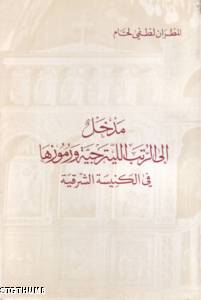 المطران لطفي لحام
مدخل
إلى الرتب الليترجية ورموزها
في الكنيسة الشرقية
STGTHUMB